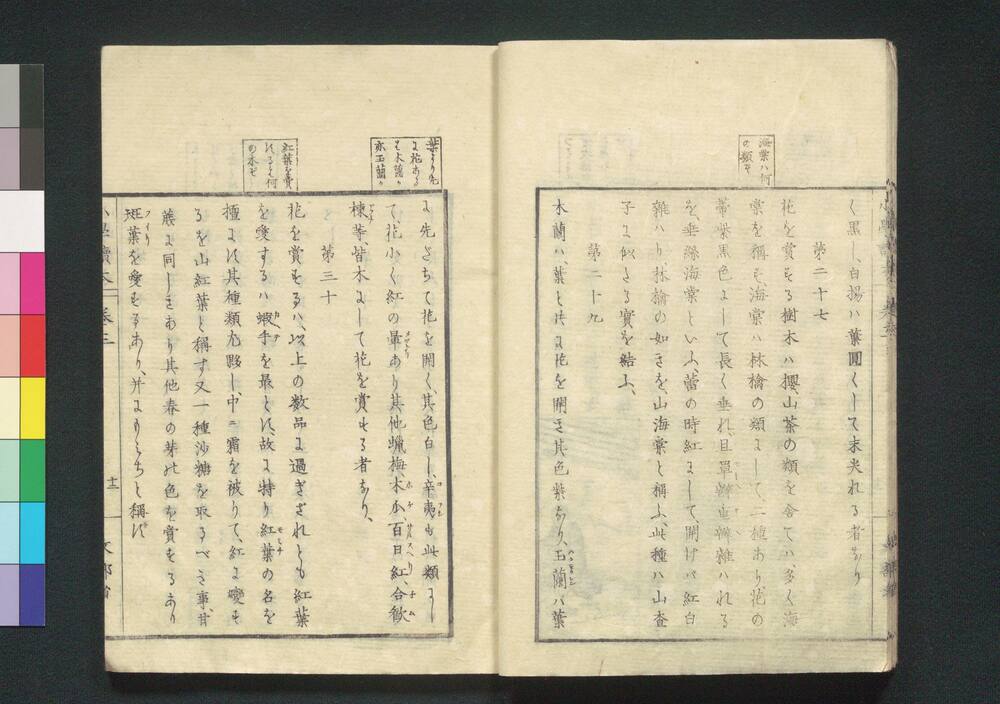 海棠ハ何
の類そ
く黒し、白楊ハ葉圓くして末尖れる者なり
第二十七
花を賞する樹木ハ櫻山茶の類を舎てハ、多く海
棠を稱す、海棠ハ林檎の類にして、二種あり、花の
蔕深黒色にして長く垂れ、且單瓣重瓣雑ハれる
を垂絲海棠といふ、蕾の時紅にして開けバ紅白
雑ハり林檎の如きを、山海棠と稱ふ、此種ハ山査
子に似たる實を結ふ、
第二十九
木蘭ハ、葉と共に花を開き其色紫なり、玉蘭ハ葉
葉より先
に花ある
は木蘭か
亦玉蘭か
紅葉を賞
するは何
の木そ
に先だちて花を開く、其色白し、辛夷も此類にし
て、花小く紅の暈あり其他蝋梅、木瓜百日紅、合歓
楝等、皆木にして花を賞する者なり、
第三十
花を賞するハ、以上の数品に過ぎざれとも紅葉
を愛するハ蝦手を最とす、故に特り紅葉の名を
擅にす其種類尤夥し、中ニ霜を被りて、紅に變す
るを山紅葉と稱す又一種沙糖を取るべき事、甘
蔗に同しきあり其他春の芽の色を賞するあり
斑葉を愛するあり、并にもみちと稱す
小學讀本 卷三
十二
文部省